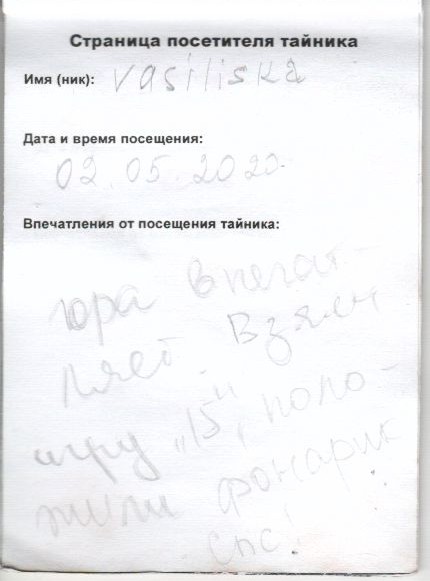 Страница посетителя тайника
Имя (ник): vasiliska
Дата и время посещения:
02.05.2020
Впечатления от посещения тайника:
гора впечат-
ляет. Взяли
игру „15", поло-
жили фонарик
спс!